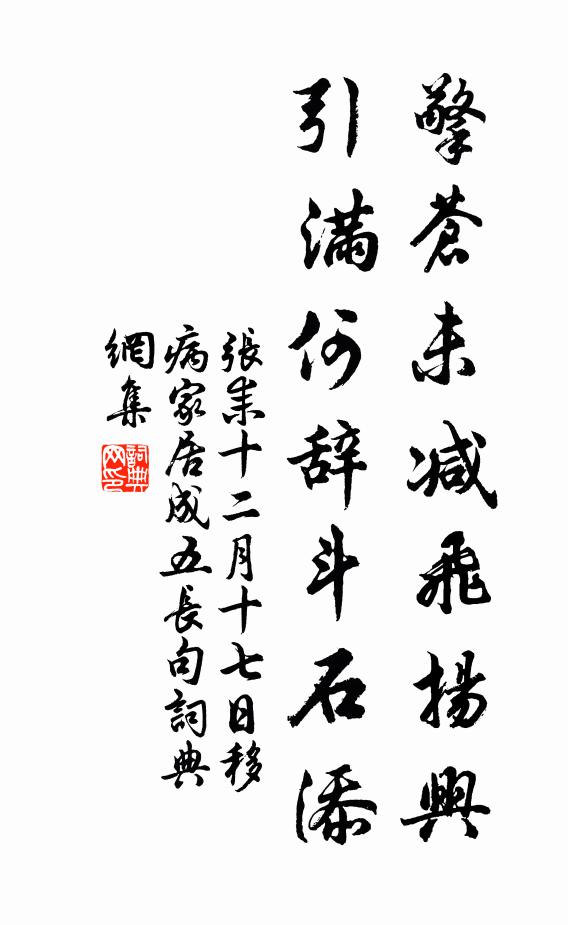 擎蒼未减飛揚興
引滿何辞斗石添
張耒十二月十七日移
病家居成五長句詞典
網集
詞典网印